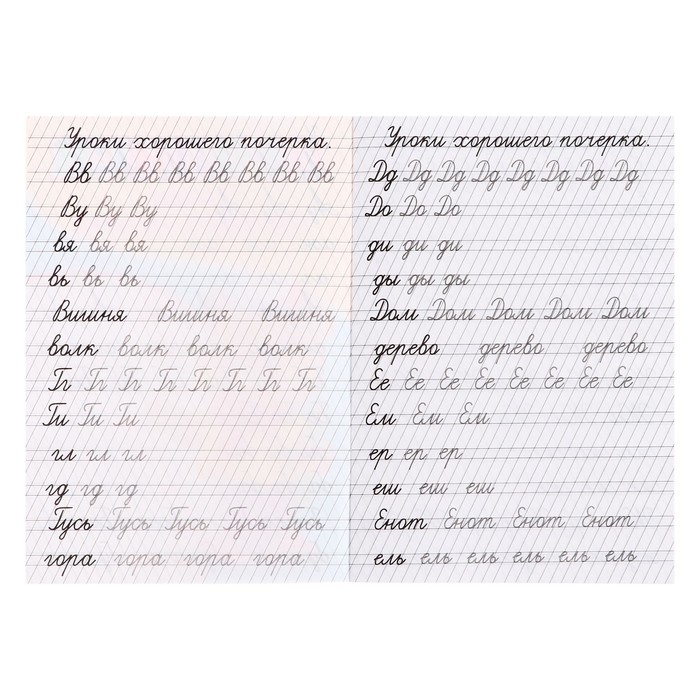 Уроки хорошего почерка.
Вв Вв Вв Вв Вв Вв Вв Вв
Ву Ву Ву
вя вя вя
вь вь вь
Вишня Вишня Вишня
волк волк волк волк
Гг Гг Гг Гг Гг Гг Гг Гг
Ги Ги Ги
гл гл гл
гд гд гд
Гусь Гусь Гусь Гусь Гусь
гора гора гора гора
Уроки хорошего почерка.
Дд Дд Дд Дд Дд Дд Дд Дд
До До До
ди ди ди
ды ды ды
Дом Дом Дом Дом Дом
дерево дерево дерево
Ее Ее Ее Ее Ее Ее Ее Ее
Ем Ем Ем
ер ер ер
еш еш еш
Енот Енот Енот Енот
ель ель ель ель ель ель